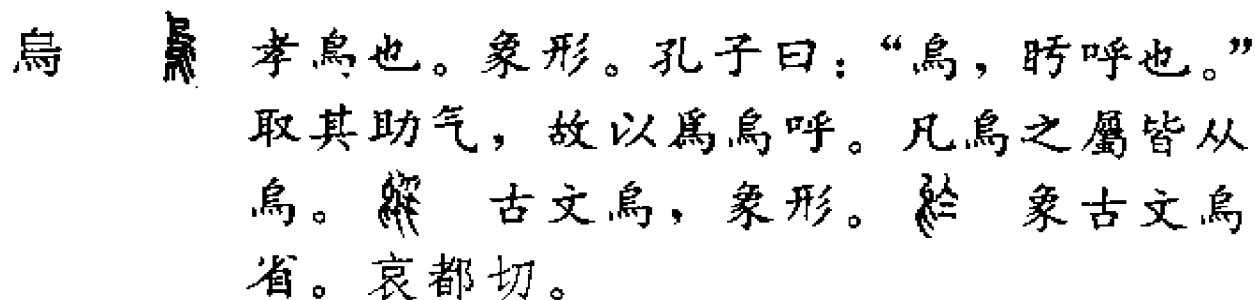 烏 孝烏也。象形。孔子曰：“烏，盱呼也。”
取其助气，故以爲烏呼。凡烏之屬皆从
烏。 古文烏，象形。 象古文烏
省。哀都切。